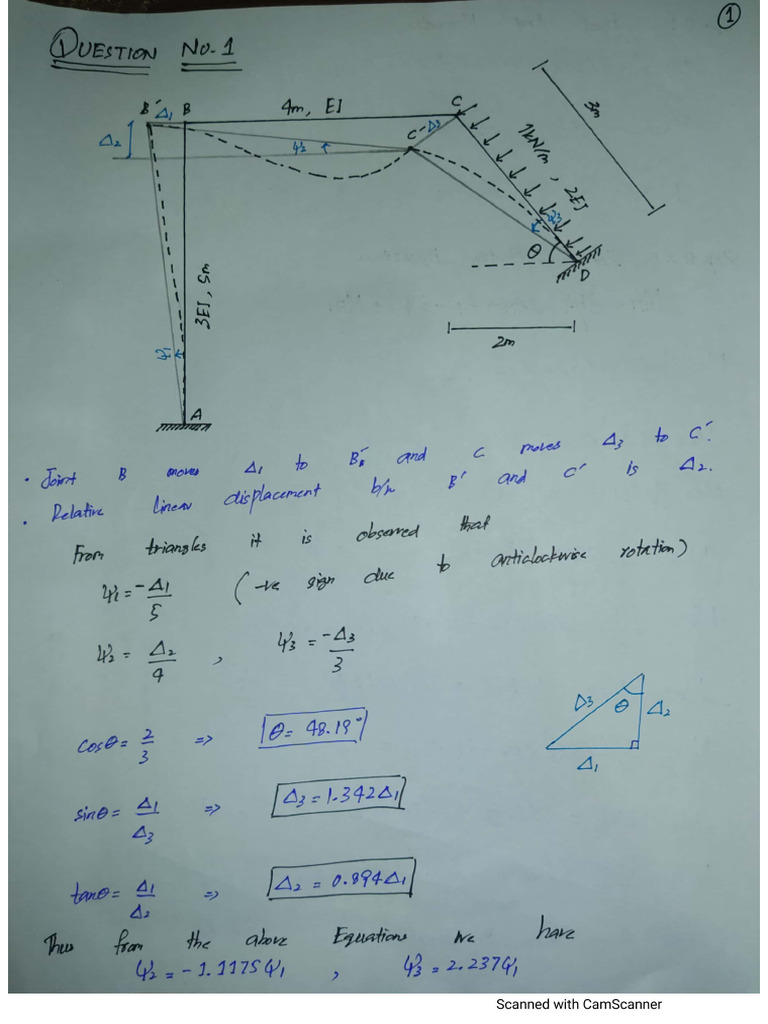 1
① QUESTION No. 1
B' Δ1 B 4m, EI C
Δ2 ψ2 C' Δ3
3m
1kN/m, 2EI
ψ3
θ
D
3EI, 5m
2m
ψ1
A
• Joint B moves Δ1 to B' and C moves Δ3 to C'.
• Relative linear displacement b/w B' and C' is Δ2.
From triangles it is observed that
ψ1 = -Δ1/5 (-ve sign due to anticlockwise rotation)
ψ2 = Δ2/4 , ψ3 = -Δ3/3
cosθ = 2/3 => θ = 48.19°
Δ3 θ Δ2
Δ1
sinθ = Δ1/Δ3 => Δ3 = 1.342Δ1
tanθ = Δ1/Δ2 => Δ2 = 0.894Δ1
Thus from the above Equations we have
ψ2 = -1.1175ψ1 , ψ3 = 2.237ψ1
Scanned with CamScanner